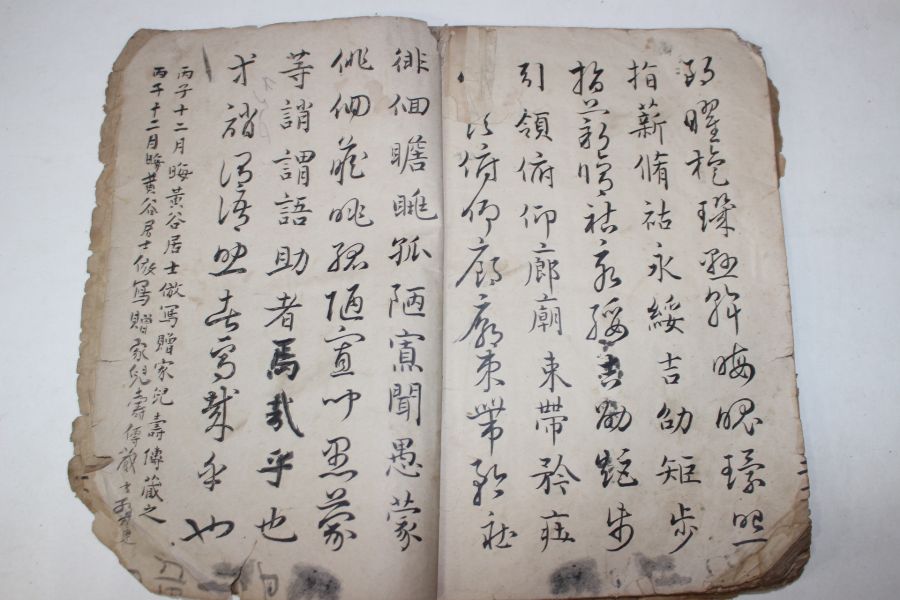 朗曜旋璣懸斡晦魄環照
指薪脩祜永綏吉劭矩步
指薪脩祜永綏吉劭矩步
引領俯仰廊廟束帶矜莊
領俯仰廊廟束帶矜莊
徘徊瞻眺孤陋寡聞愚蒙
徘徊瞻眺孤陋寡聞愚蒙
等誚謂語助者焉哉乎也
等誚謂語助者焉哉乎也
丙子十二月晦黃谷居士倣寫贈家兒壽傳藏之
丙子十二月晦黃谷居士倣寫贈家兒壽傳藏